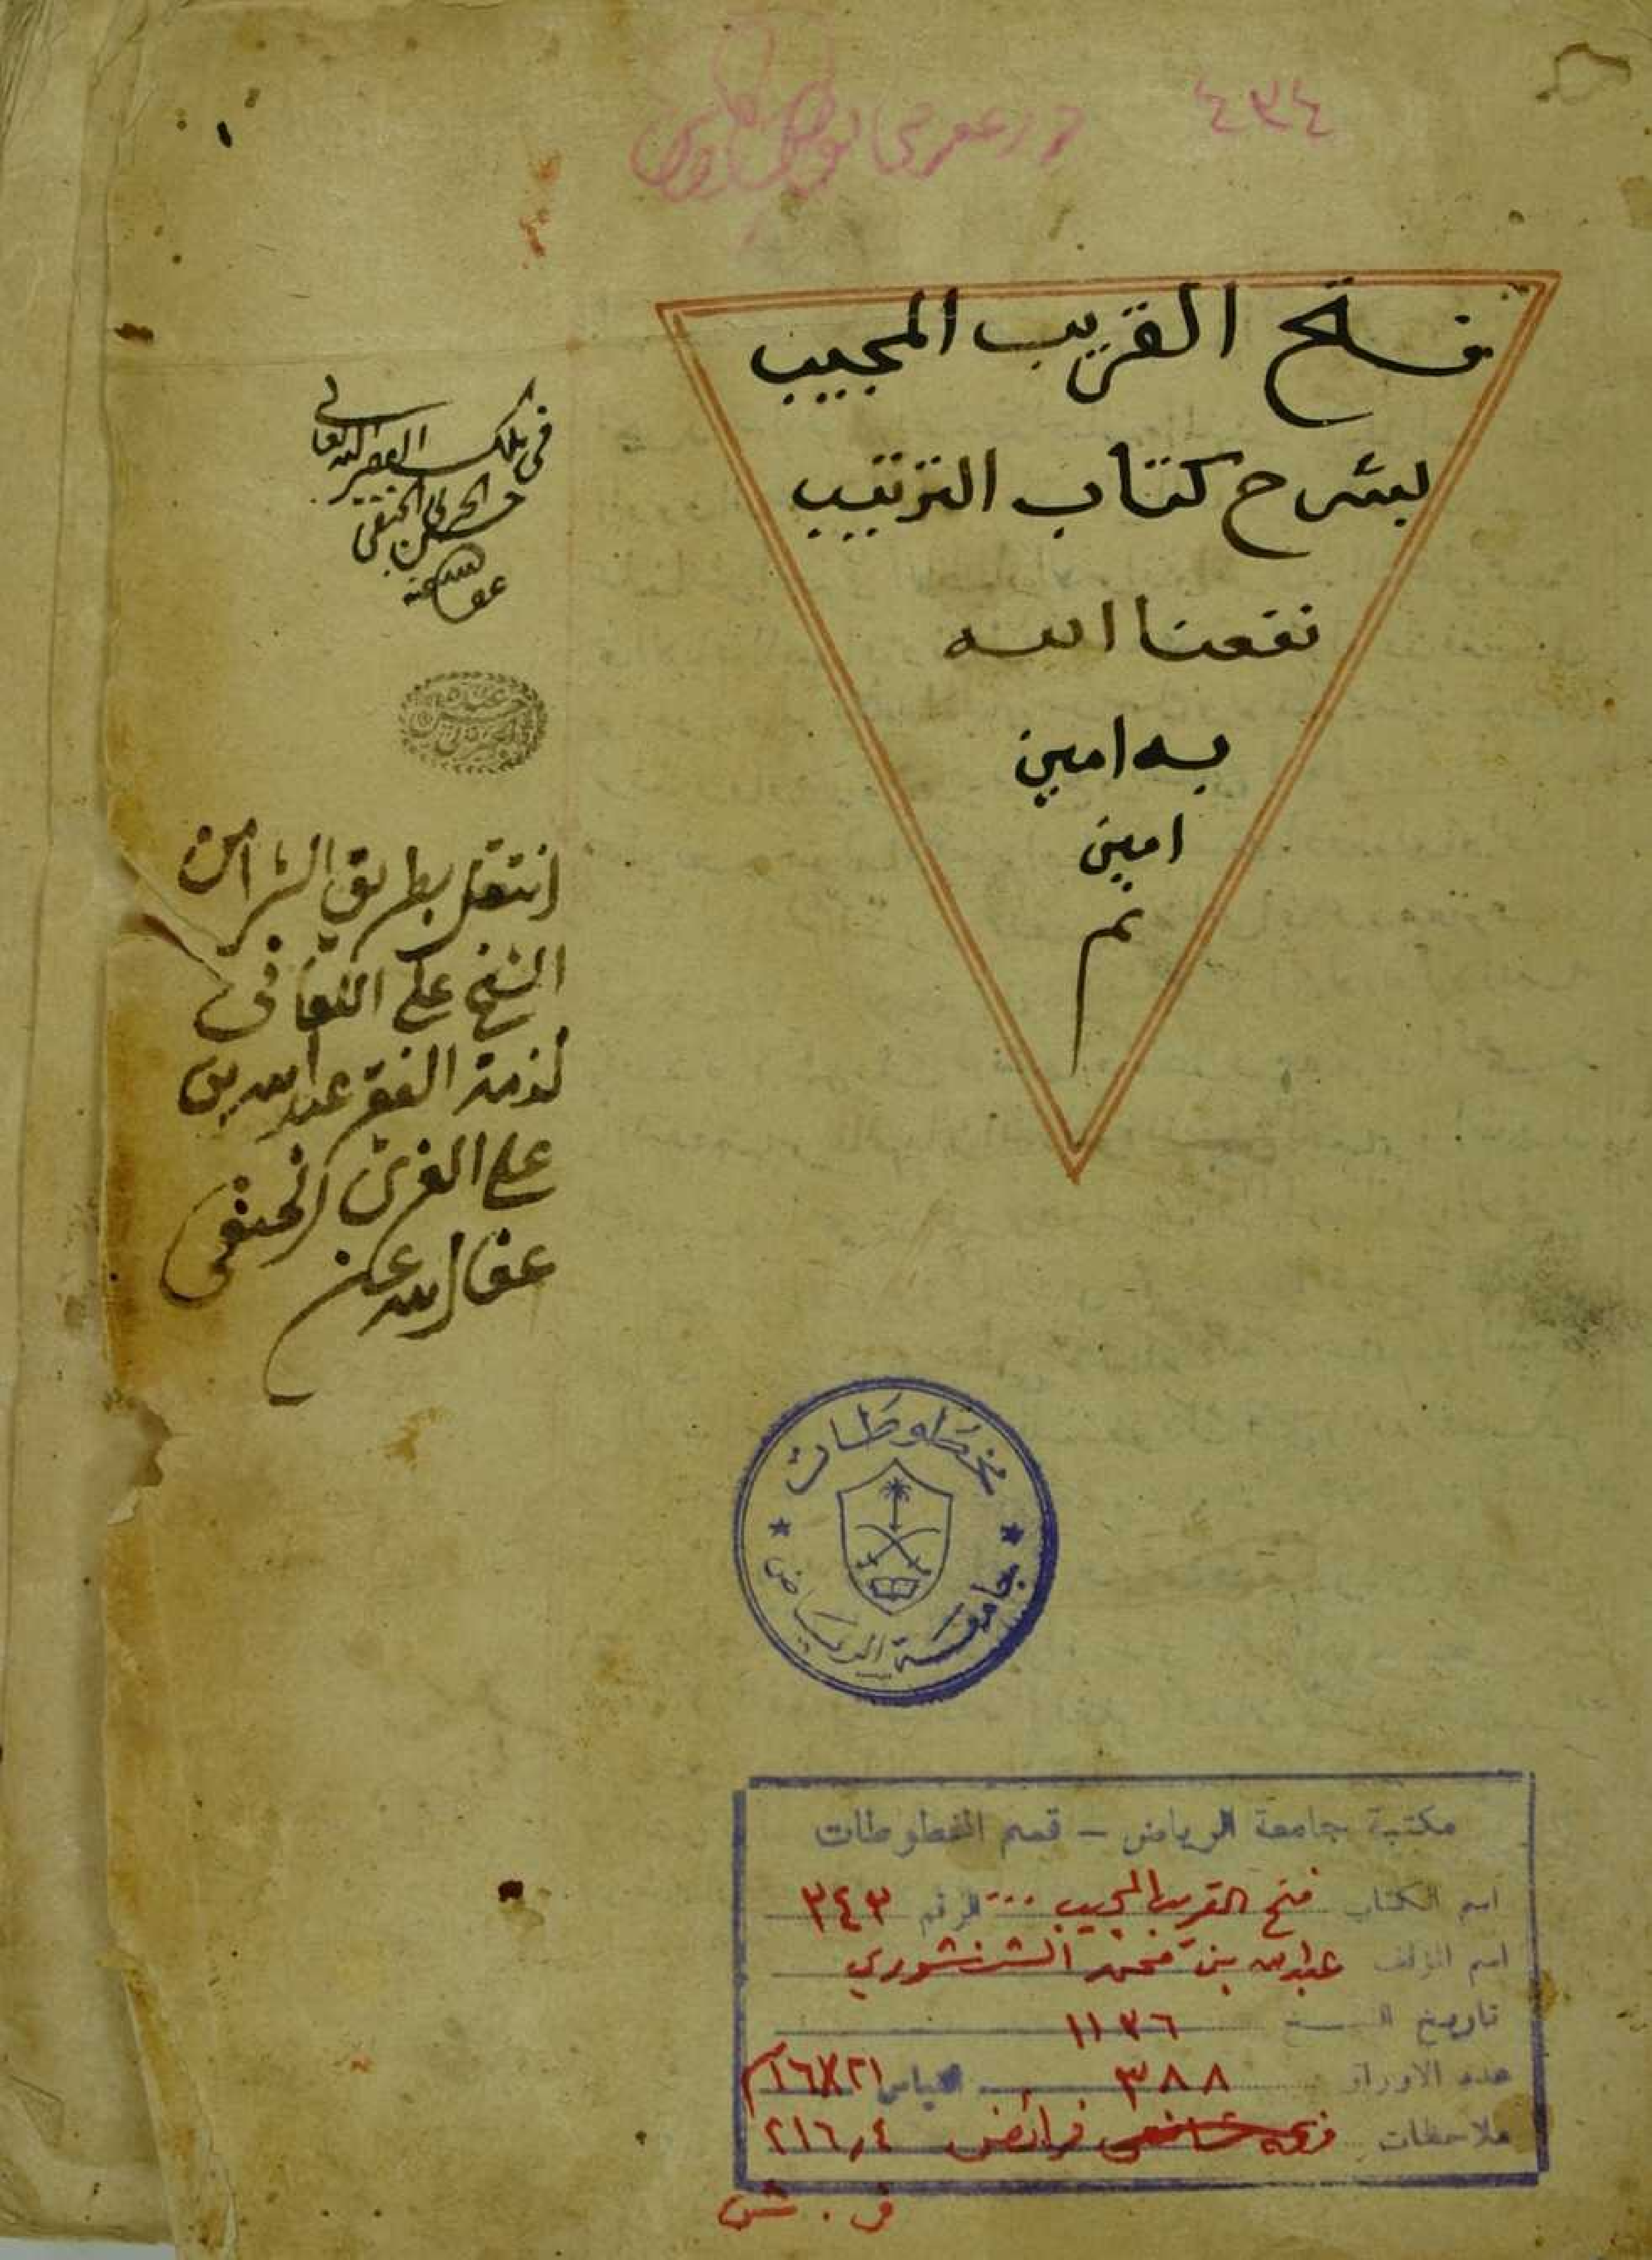 ٤٣٤
فتح القريب المجيب
بشرح كتاب الترتيب
نفعنا الله
به امين
امين
تم
في ملك الفقير الله تعالى
حسن الحنفي
عفا الله عنه
انتقل بطريق الشرا من
الشيخ علي اللقاني
لذمة الفقير عبد الله بن
علي الغزي الحنفي
عفا الله عنه
مخطوطات
جامعة الرياض
مكتبة جامعة الرياض - قسم المخطوطات
اسم الكتاب فتح القريب المجيب ... الرقم ٣٤٣
اسم المؤلف عبد الله بن محمد الشنشوري
تاريخ النسخ ١١٣٦
عدد الاوراق ٣٨٨ القياس ٢١×١٦ سم
ملاحظات فقه شافعي فرائض ٢١٦٫٤
ف . ش